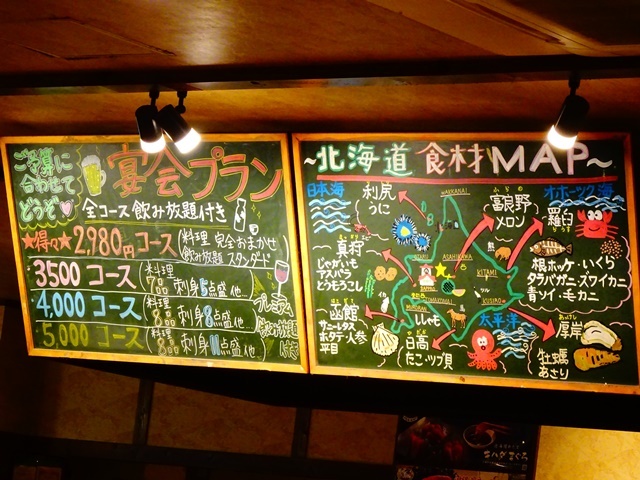 ご予算に
合わせて
どうぞ
宴会プラン
全コース飲み放題付き
★得々★2,980円コース(料理 完全おまかせ
飲み放題 スタンダード)
3500コース(料理
7品 刺身5点盛 他)
4,000コース(料理
8品 刺身8点盛 他)
5,000コース(料理
8品 刺身11点盛 他)
プレミアム
飲み放題
付き
~北海道 食材MAP~
日本海
利尻
うに
WAKKANAI
富良野
ふらの
メロン
オホーツク海
羅臼
らうす
根ボッケ・いくら
タラバガニ・ズワイカニ
青ソイ・毛カニ
真狩
じゃがいも
アスパラ
とうもろこし
OTARU
ASAHIKAWA
KITAMI
函館
サニーレタス
ホタテ・人参
平目
ししゃも
日高
たこ・ツブ貝
太平洋
厚岸
あっけし
牡蠣
あさり
キハダまぐろ